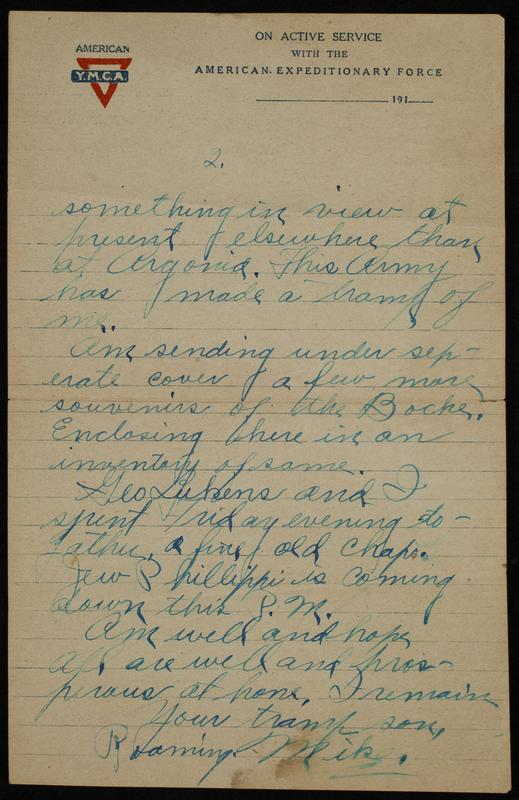 AMERICAN
Y.M.C.A.
ON ACTIVE SERVICE
WITH THE
AMERICAN EXPEDITIONARY FORCE
191
2.
something in view at
present elsewhere than
at Argonia. This Army
has made a tramp of
me.
Am sending under sep-
erate cover a few more
souvenirs of the Boche.
Enclosing here in an
inventory of same.
Geo Lukens and I
spent Friday evening to-
gather, a fine old chap.
Jew Phillippi is coming
down this P.M.
Am well and hope
all are well and pros-
perous at home, I remain
Your tramp son,
Roaming Mike.